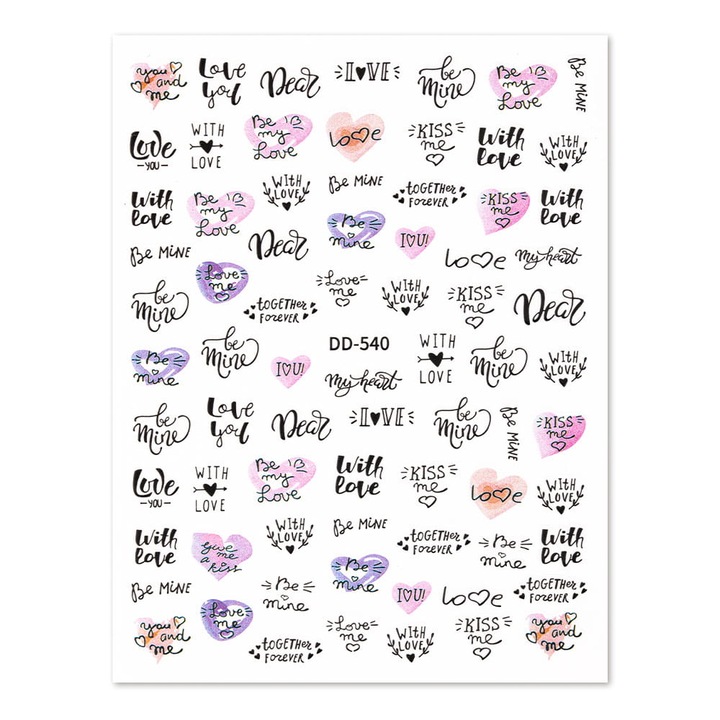 you and me
Love you
Dear
LOVE
be Mine
Be my Love
Be MINE
Love
YOU
WITH
LOVE
Be my Love
Love
KISS me
With love
WITH LOVE
With love
Be my Love
WITH LOVE
Be MINE
TOGETHER
FOREVER
KISS me
With love
Be MINE
Dear
Be mine
I♡U!
Love
My heart
be Mine
Love me
TOGETHER
FOREVER
Love me
WITH LOVE
KISS me
Dear
Be mine
be Mine
I♡U!
DD-540
My heart
WITH
LOVE
be Mine
WITH LOVE
be Mine
Love you
Dear
LOVE
be Mine
Be MINE
KISS me
Love
YOU
WITH
LOVE
Be my Love
With love
KISS me
Love
WITH LOVE
With love
Give me a kiss
WITH LOVE
Be MINE
TOGETHER
FOREVER
Be mine
With love
Be MINE
Love me
Be mine
Be mine
I♡U!
Love
TOGETHER
FOREVER
you and me
TOGETHER
FOREVER
Love me
WITH LOVE
KISS me
you and me